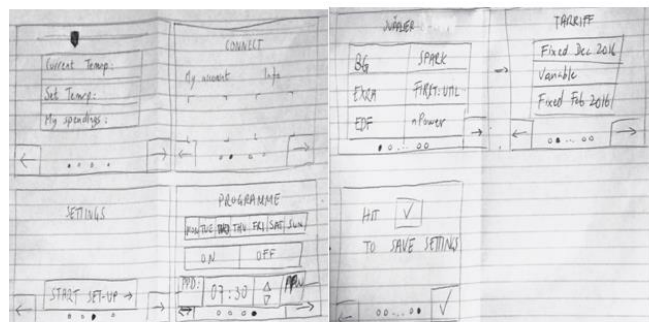 Current Temp:
Set Temp:
My spendings:
CONNECT
My account Info
SETTINGS
START SET-UP →
PROGRAMME
MON TUE WED THU FRI SAT SUN
ON OFF
07:30
TARRIFF
BG SPARK
FIRST:UTIL
EDF nPower
Fixed Dec 2016
Variable
Fixed Feb 2016
HIT ✓
TO SAVE SETTINGS